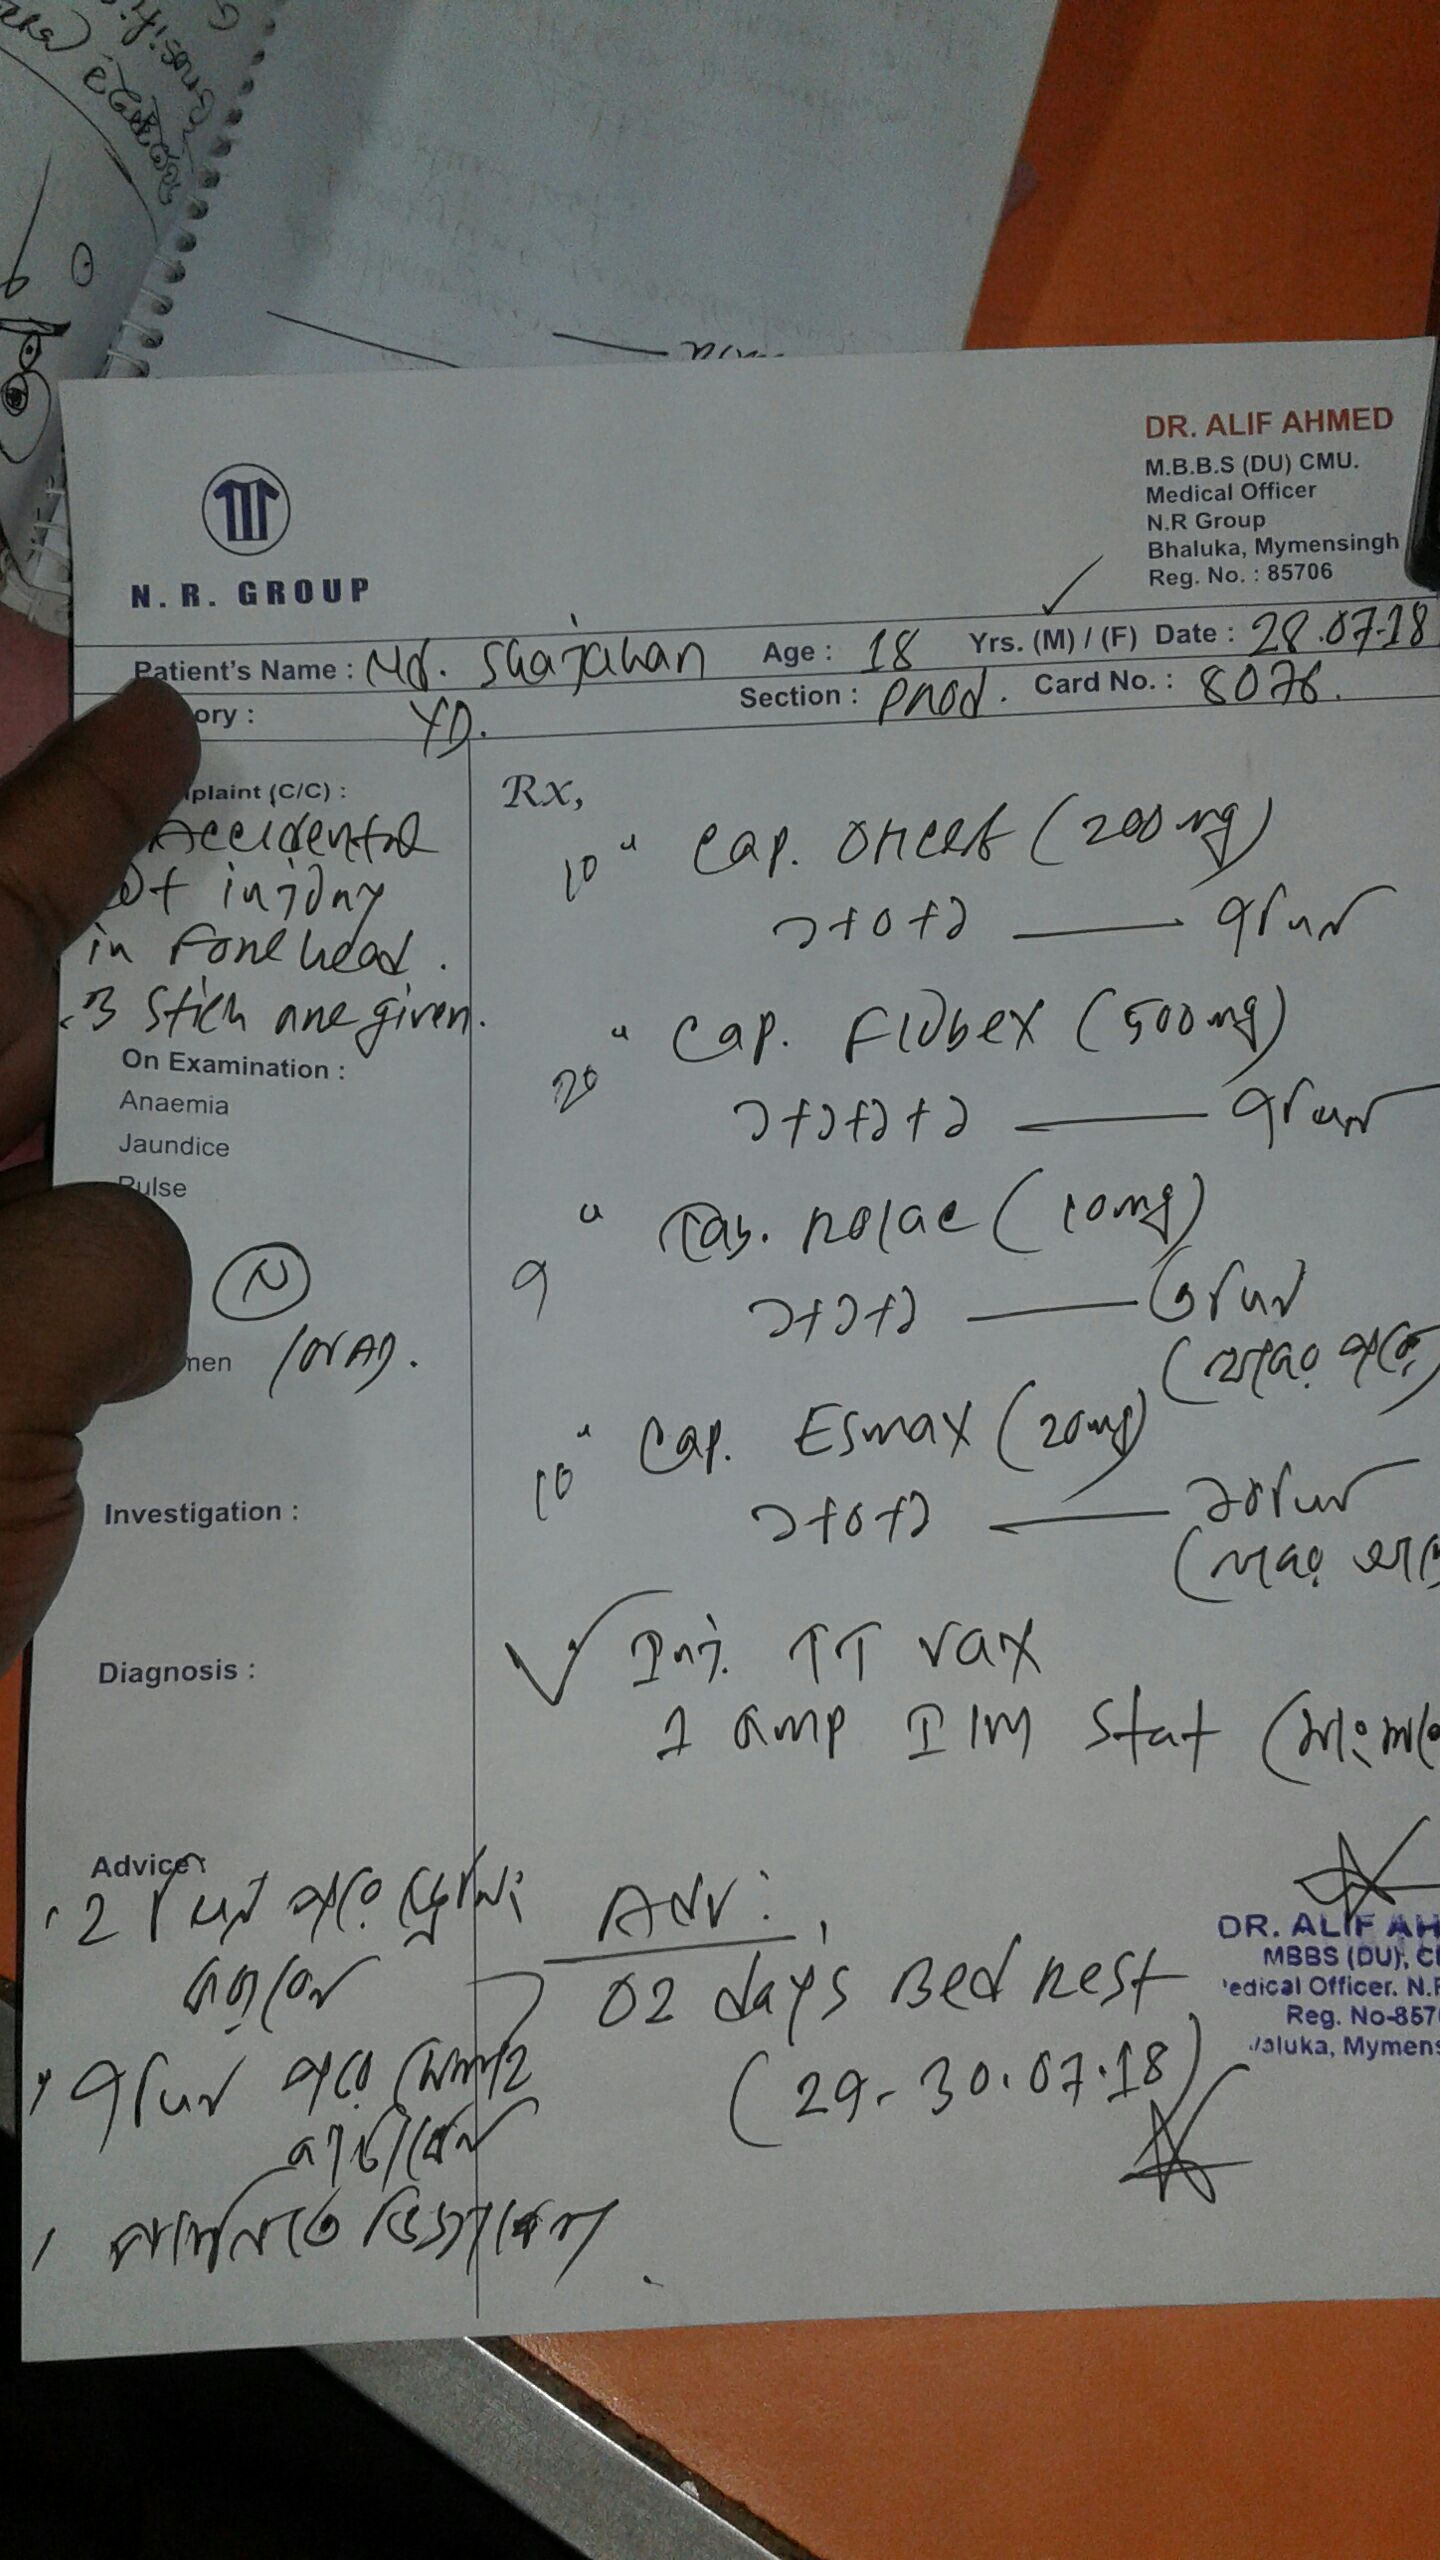 DR. ALIF AHMED
M.B.B.S (DU) CMU.
Medical Officer
N.R Group
Bhaluka, Mymensingh
Reg. No. : 85706
N. R. GROUP
Patient's Name : Md. Shajahan Age : 18 Yrs. (M) / (F) Date : 28.07.18
ory : YD. Section : Prod. Card No. : 8076.
plaint (C/C) :
Accidental
injury
in Fore head.
3 Stich are given.
On Examination :
Anaemia
Jaundice
Pulse
N
men / NAD.
Investigation :
Diagnosis :
Rx,
10 " Cap. (200 mg)
১+০+১ — ৭দিন
20 " Cap. Flubex (500 mg)
১+১+১+১ — ৭দিন
৯ " Tab. Rolac (10mg)
১+১+১ — ৩দিন
(খাবার পরে)
10 " Cap. Esmax (20mg)
১+০+১ — ১০দিন
(খাবার
Inj. TT vax
1 amp I/M Stat
Advice :
2 দিন পরে ড্রেসিং
করবেন
৭দিন পরে সেলাই
কাটাবেন
Adv:
02 day's Bed Rest
(29-30.07.18)
DR. ALIF AH
MBBS (DU), C
edical Officer. N.
Reg. No-857
aluka, Mymens